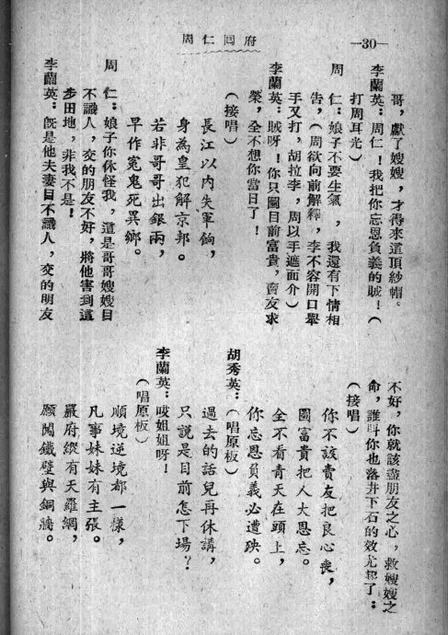 周仁囘府
—30—
哥,獻了嫂嫂,才得來這頂紗帽。
李蘭英:周仁!我把你忘恩負義的賊!(
打周耳光)
周 仁:娘子不要生氣,我還有下情相
告,(周欲向前解釋,李不容開口舉
手又打,胡拉李,周以手遮面介)
李蘭英:賊呀!你只圖目前富貴,賣友求
榮,全不想你當日了!
(接唱)
長江以內失軍餉,
身為皇犯解京邦。
若非哥哥出銀兩,
早作寃鬼死異鄉。
周 仁:娘子你休怪我,這是哥哥嫂嫂目
不識人,交的朋友不好,將他害到這
步田地,非我不是!
李蘭英:旣是他夫妻目不識人,交的朋友
不好,你就該盡朋友之心,救嫂嫂之
命,誰料你也落井下石的效尤起了:
(接唱)
你不該賣友把良心喪,
圖富貴把人大恩忘。
全不看青天在頭上,
你忘恩負義必遭殃。
胡秀英:(唱原板)
過去的話兒再休講,
只說是目前怎下場?
李蘭英:哎姐姐呀!
(唱原板)
順境逆境都一樣,
凡事妹妹有主張。
嚴府縱有天羅網,
願闖鐵壁與銅牆。